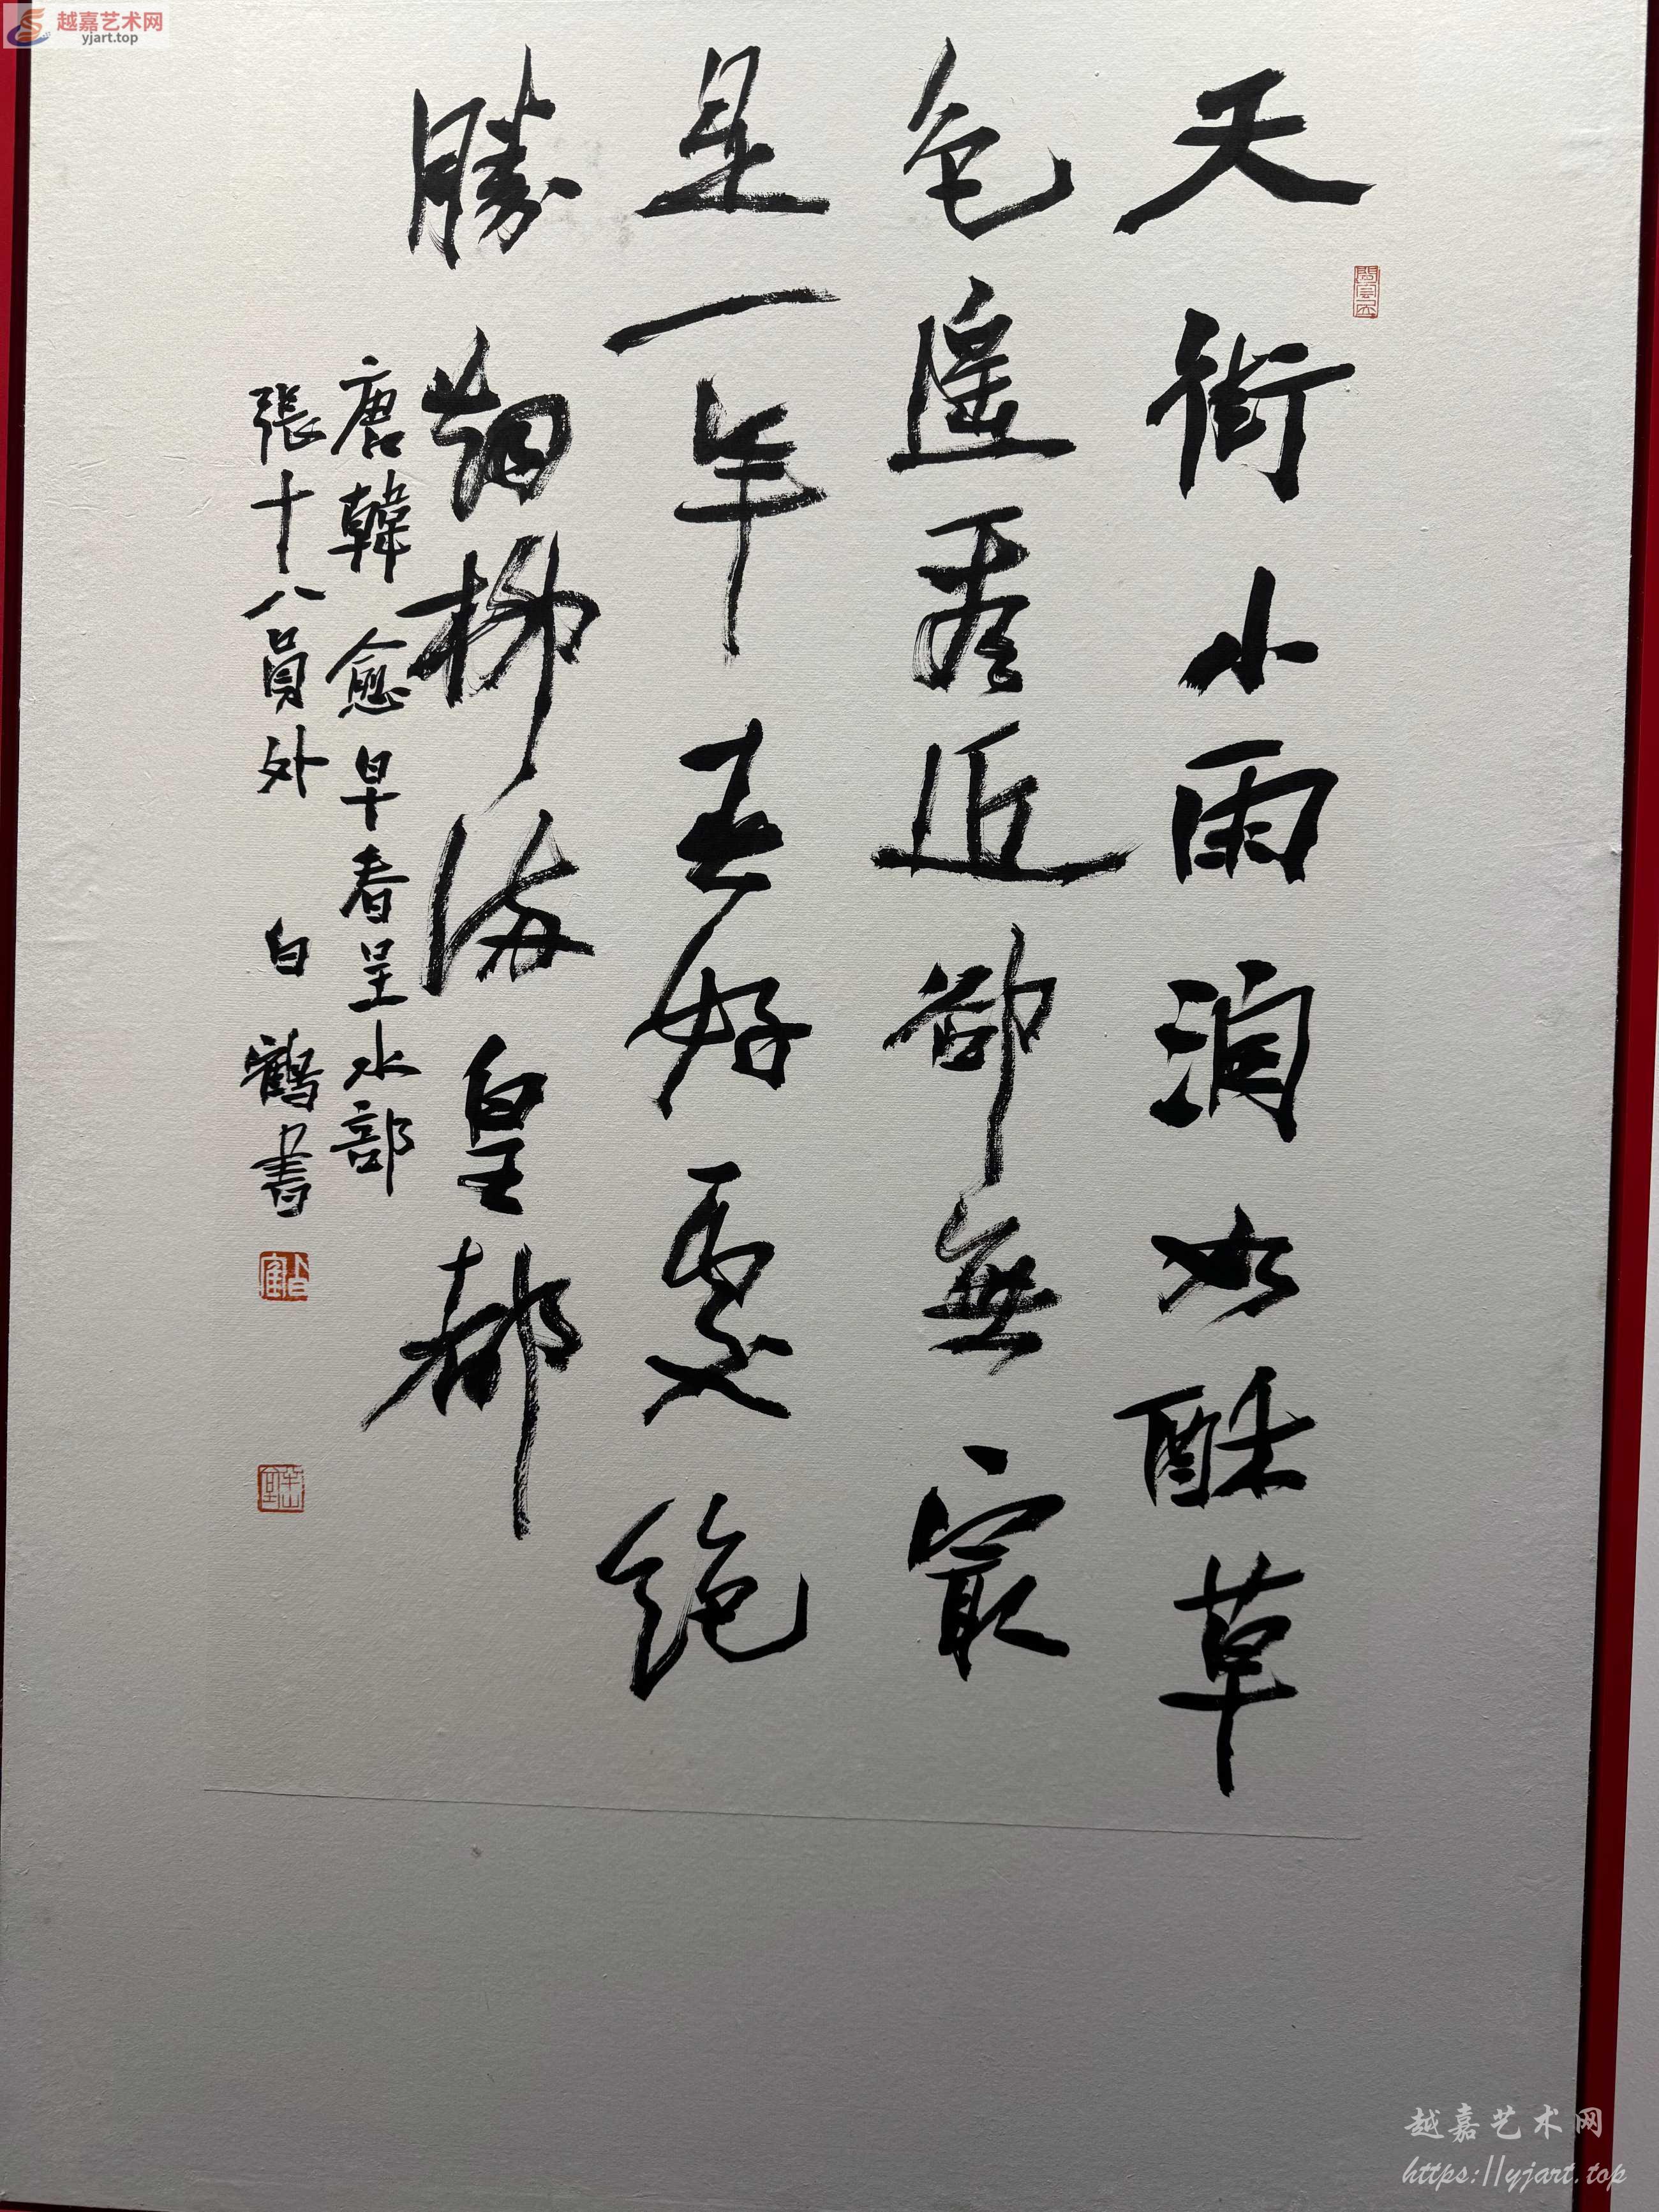 越嘉艺术网
yjart.top
天街小雨潤如酥草
色遙看近卻無最
是一年春好處絕
勝烟柳滿皇都
唐韓愈早春呈水部
張十八員外 白鶴書
越嘉艺术网
https://yjart.top